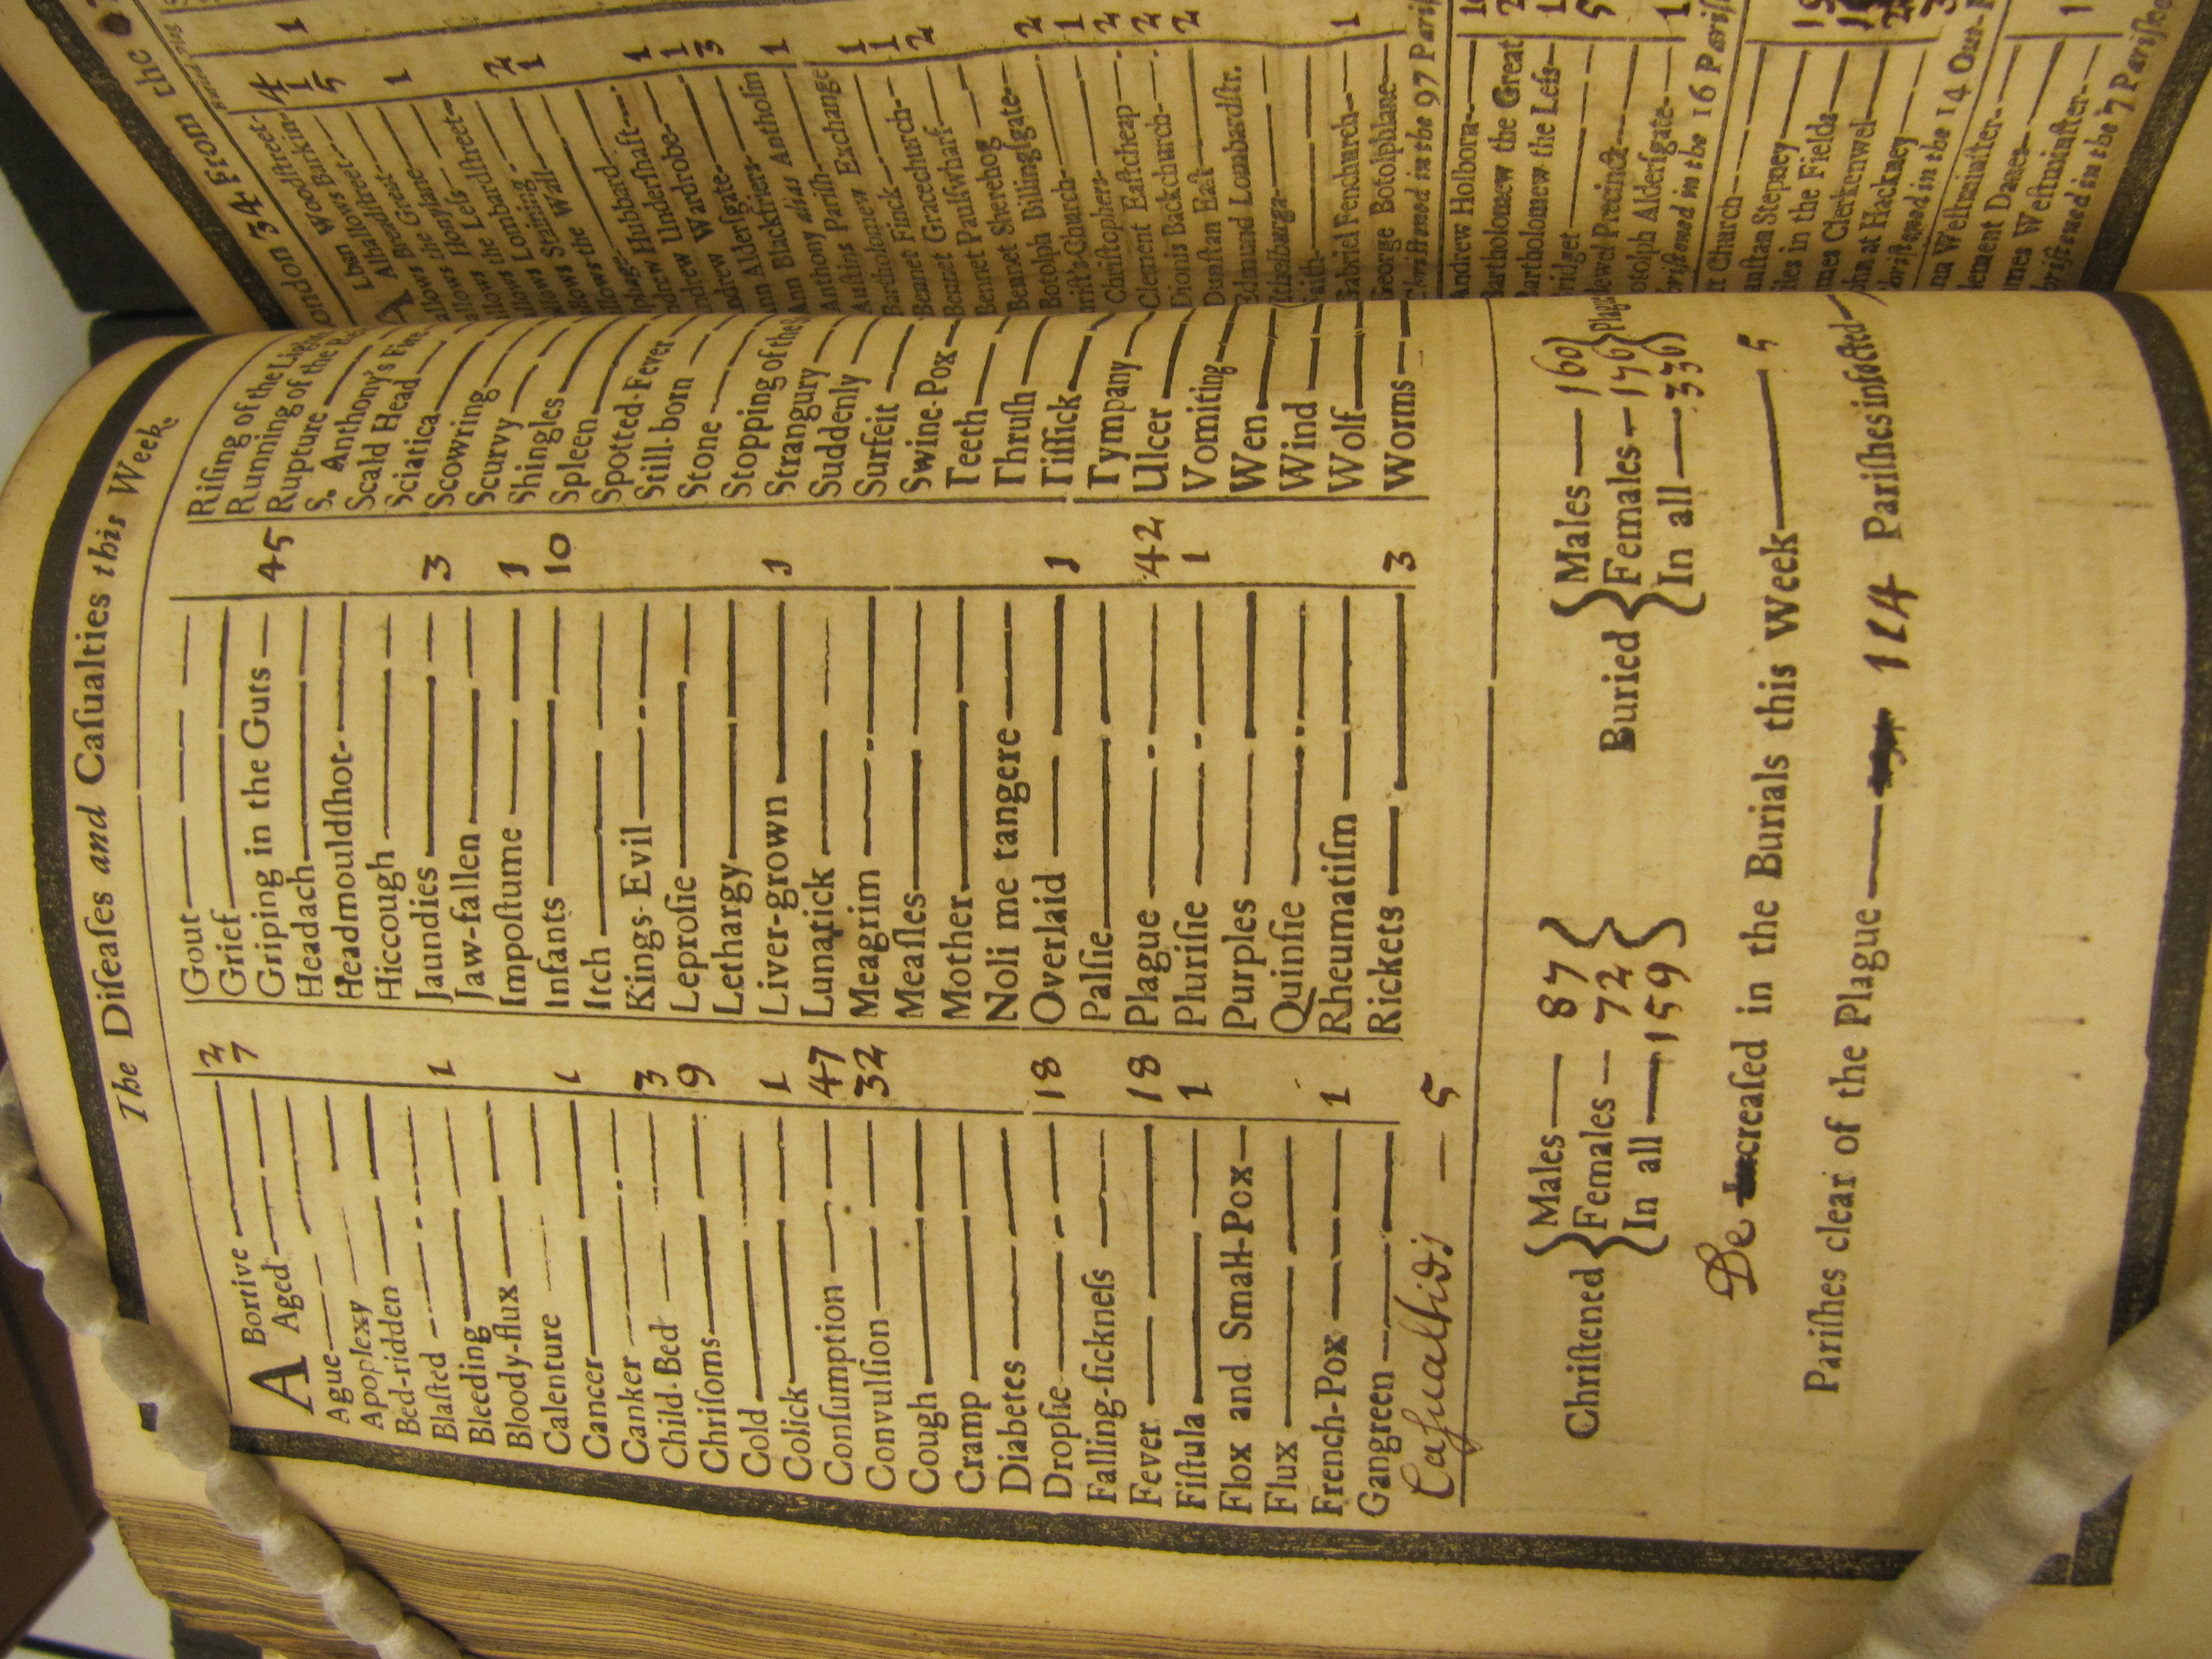 The Diſeaſes and Caſualties this Week
ABortive 2
Aged 7
Ague
Apoplexy
Bed-ridden
Blaſted 1
Bleeding
Bloody-flux
Calenture
Cancer 1
Canker
Child-Bed 3
Chriſoms 9
Cold
Colick 1
Conſumption 47
Convulſion 32
Cough
Cramp
Diabetes
Dropſie 18
Falling-ſickneſs
Fever 18
Fiſtula 1
Flox and Small-Pox
Flux
French-Pox 1
Gangreen
Caſualtids 5
Gout
Grief
Griping in the Guts 45
Headach
Headmouldſhot
Hiccough
Jaundies 3
Jaw-fallen
Impoſtume 1
Infants 10
Itch
Kings-Evil
Leproſie
Lethargy
Liver-grown 1
Lunatick
Meagrim
Meaſles
Mother
Noli me tangere
Overlaid 1
Palſie
Plague 42
Pluriſie 1
Purples
Quinſie
Rheumatiſm
Rickets 3
Riſing of the
Running of the
Rupture
S. Anthony's Fire
Scald Head
Sciatica
Scowring
Scurvy
Shingles
Spleen
Spotted-Fever
Still-born
Stone
Stopping of the
Strangury
Suddenly
Surfeit
Swine-Pox
Teeth
Thruſh
Tiſſick
Tympany
Ulcer
Vomiting
Wen
Wind
Wolf
Worms
Chriſtened { Males 87 Females 72 In all 159 }
Buried { Males 160 Females 176 In all 336 } Plague
De creaſed in the Burials this Week 5
Pariſhes clear of the Plague 114 Pariſhes infected
London 34 From the
Woodſtreet 4
Barkin 1
Breadſtreet 5
the Great
Honylane 1
the Leſs
Lombardſtreet
Staining 2
the Wall 1
Hubbard
Underſhaft 1
Wardrobe 1
Alderſgate 3
Ann Blackfriers 1
Anthony alias Antholin
Auſtins Pariſh
Bartholomew Exchange 1
Bennet Finck 1
Bennet Gracechurch 2
Bennet Paulſwharf
Bennet Sherehog
Botolph Billingſgate 2
Church 1
Chriſtophers 2
Clement Eaſtcheap 2
Dionis Backchurch 2
Dunſtan Eaſt
Edmund Lombardſtr.
Gabriel Fenchurch 1
George Botolphlane
in the 97 Pariſ
Andrew Holborn
Bartholomew the Great
Bartholomew the Leſs
Bridget
Precinct
Botolph Alderſgate 1
in the 16 Pariſ
Church
Dunſtan Stepney
Giles in the Fields
James Clerkenwel
at Hackney
in the 14 Out-
Weſtminſter
Clement Danes
James Weſtminſter
in the 7 Pariſhes